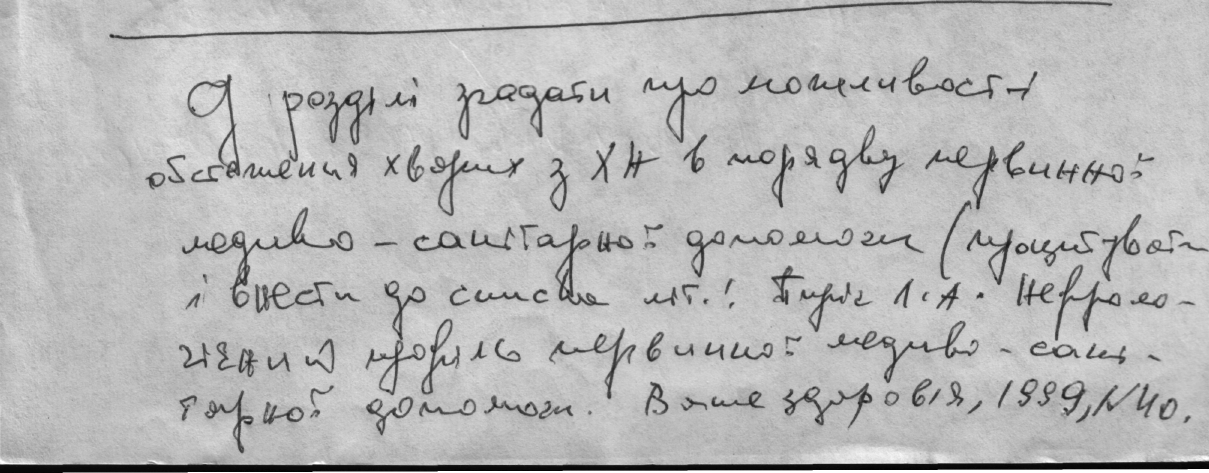 У розділі згадати про можливості
обстеження хворих з ХН в порядку первинної
медико-санітарної допомоги (процитувати
і внести до списка літ.! Пиріг Л.А. Нефроло-
гічний профіль первинної медико-сані-
тарної допомоги. Ваше здоров'я, 1999, №40.